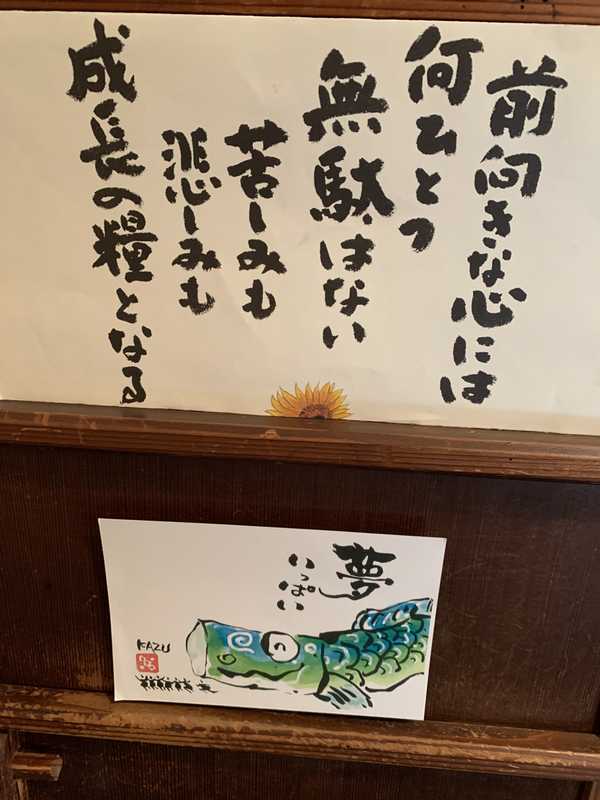 前向きな心には
何ひとつ
無駄はない
苦しみも
悲しみも
成長の糧となる
夢
いっぱい
KAZU